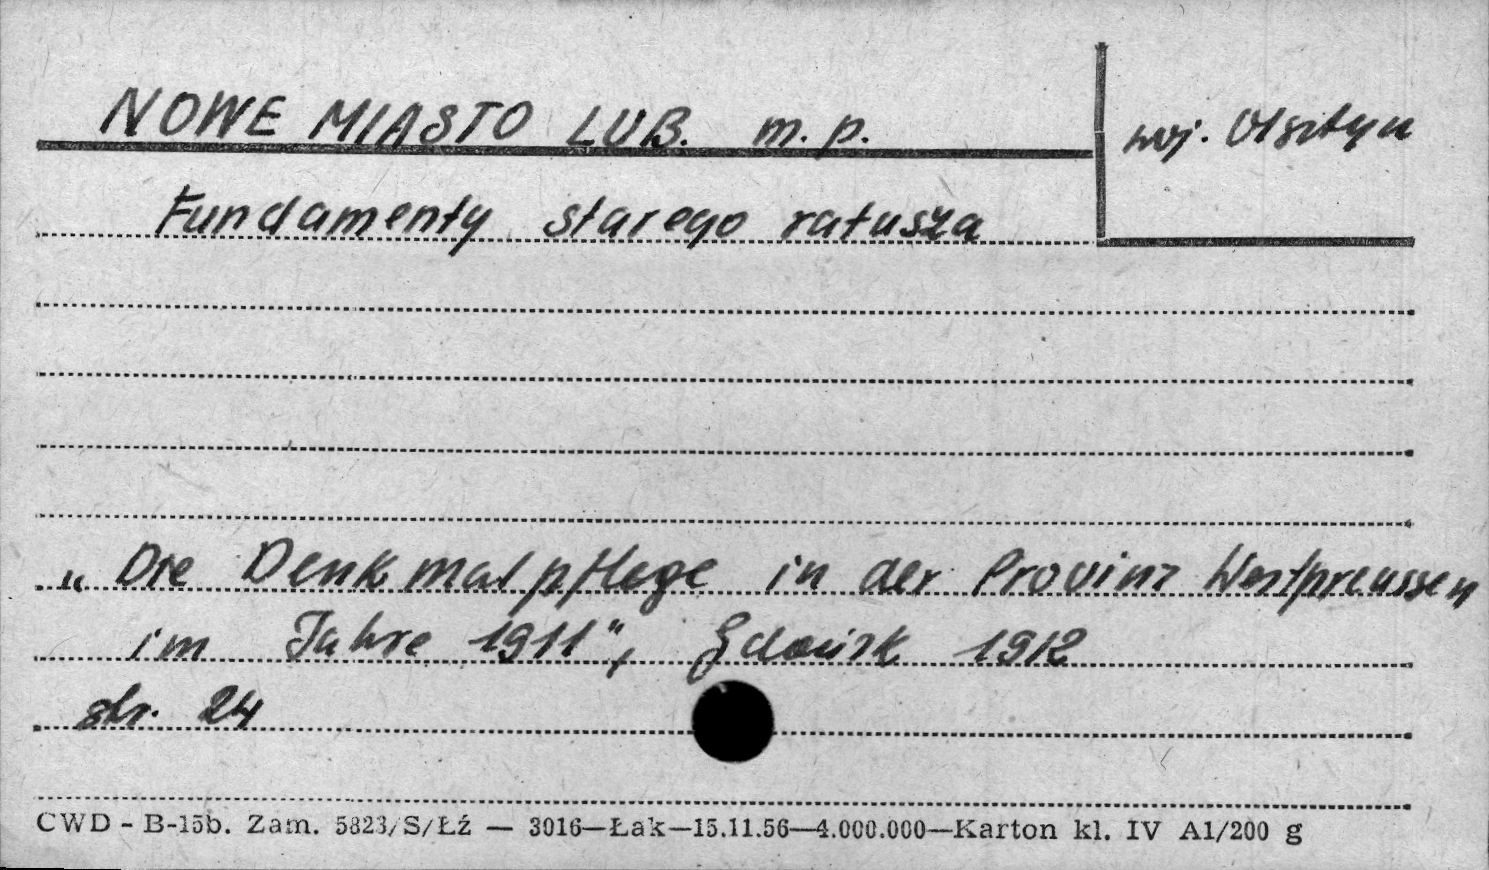 NOWE MIASTO LUB. m. p.
woj. Olsztyn
Fundamenty starego ratusza
„Die Denkmalpflege in der Provinz Westpreussen
im Jahre 1911", Gdańsk 1912
str. 24
CWD - B-15b. Zam. 5823/S/Łź — 3016—Łak—15.11.56—4.000.000—Karton kl. IV A1/200 g